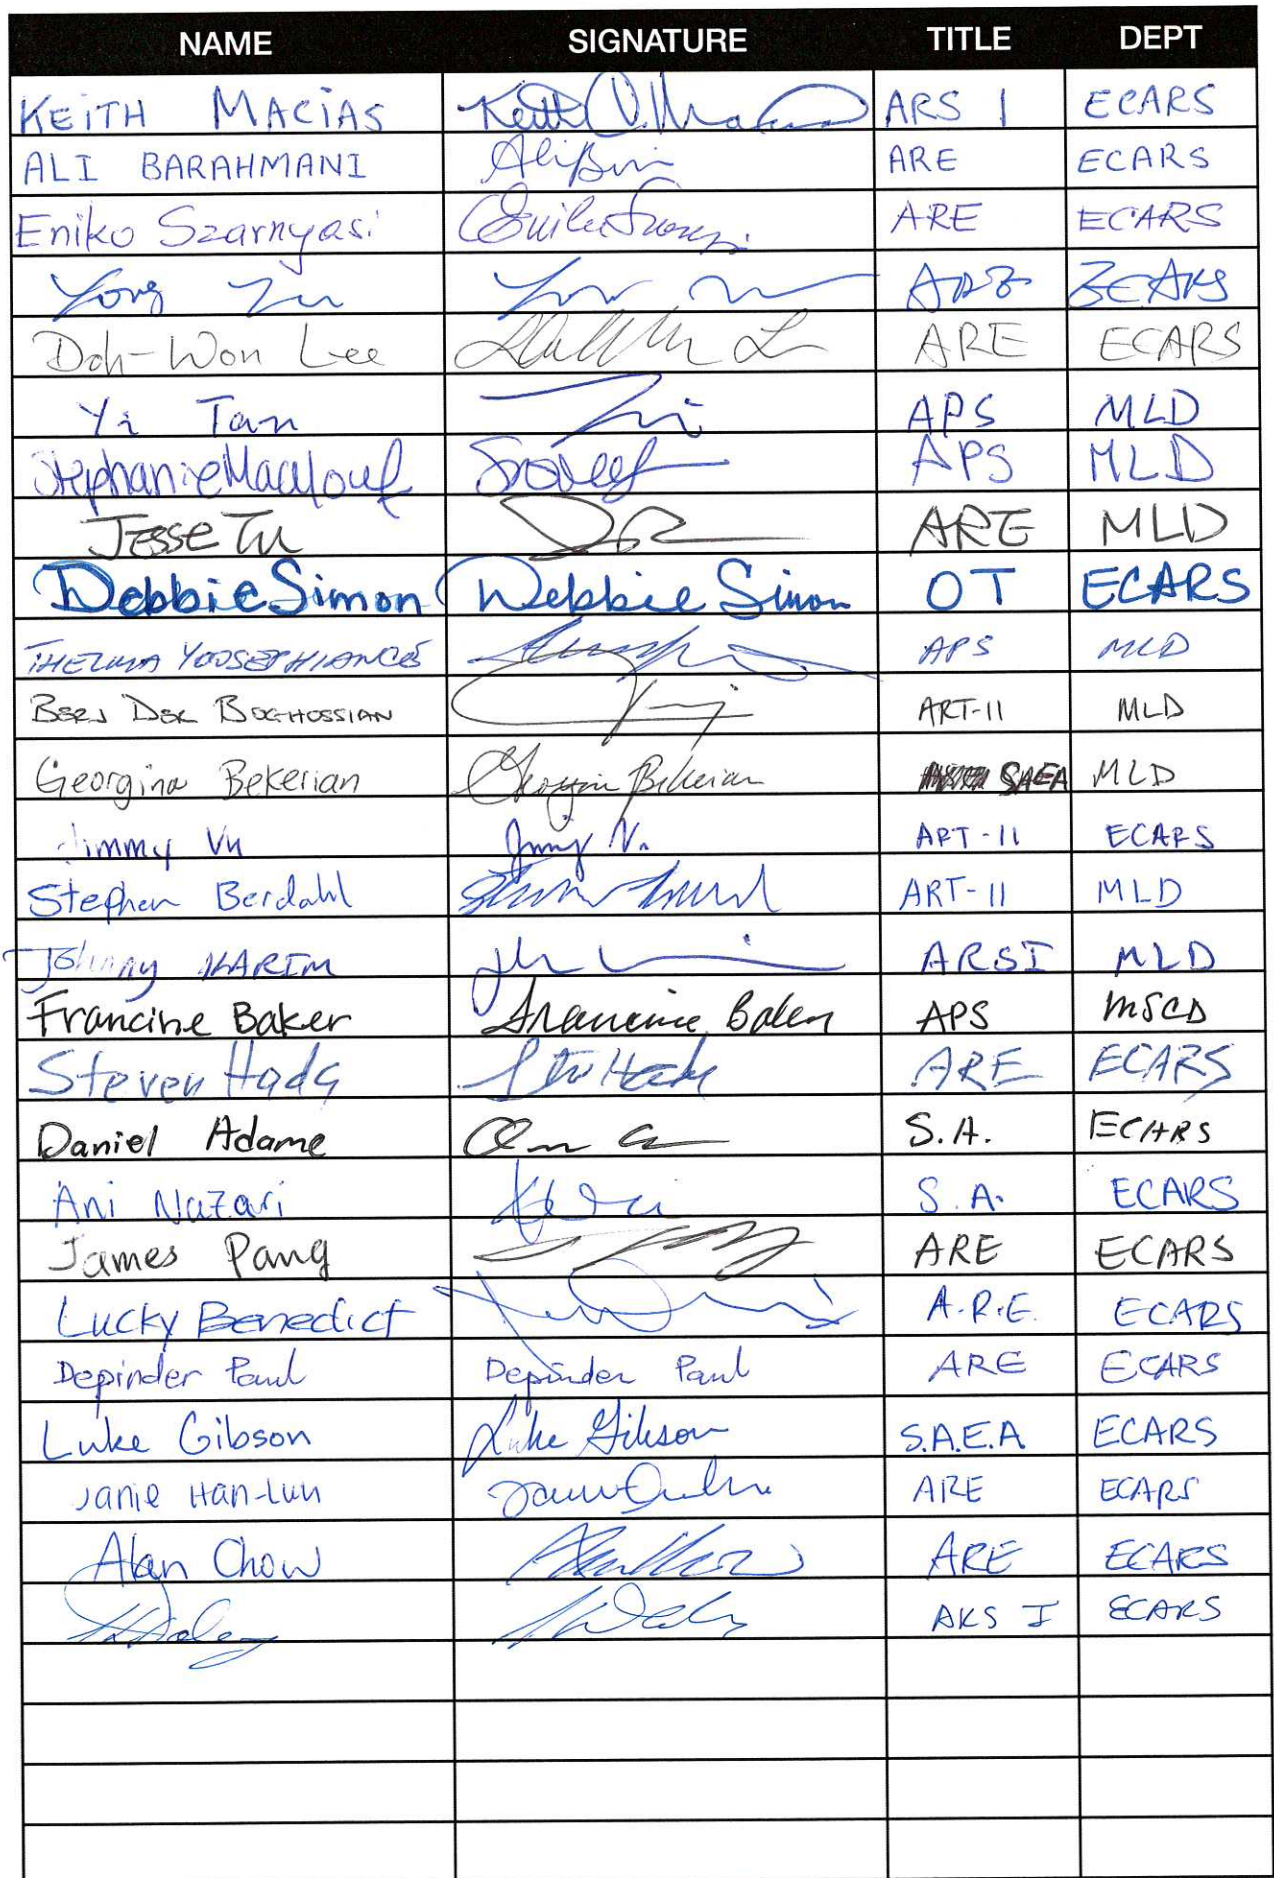 NAME SIGNATURE TITLE DEPT
KEITH MACIAS ARS I ECARS
ALI BARAHMANI ARE ECARS
Eniko Szarnyasi ARE ECARS
Yong ARE ECARS
Doh-Won Lee ARE ECARS
Yi Tan APS MLD
Stephanie Maalouf APS MLD
JESSE TU ARE MLD
Debbie Simon Debbie Simon OT ECARS
THELMA APS MLD
BERJ DER BOGHOSSIAN ART-II MLD
Georgina Bekerian Georgina Bekerian SAEA MLD
Jimmy Vu Jimmy V. ART-II ECARS
Stephen Berdahl ART-II MLD
Johnny KARIM ARSI MLD
Francine Baker Francine Baker APS MSCD
Steven Hada ARE ECARS
Daniel Adame S.A. ECARS
Ani Nazari S.A. ECARS
James Pang ARE ECARS
Lucky Benedict A.R.E. ECARS
Depinder Paul Depinder Paul ARE ECARS
Luke Gibson Luke Gibson S.A.E.A ECARS
Janie Han-Lun ARE ECARS
Alan Chow ARE ECARS
ARS I ECARS